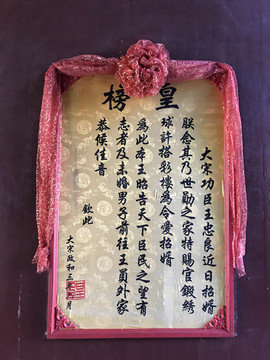 皇榜
大宋功臣王忠良近日招婿
朕念其乃世勋之家特賜官锻绣
球許搭彩樓為令愛招婿
為此本王昭告天下臣民之望有
志者及未婚男子前往王員外家
恭候佳音
欽此
大宋政和三年三月